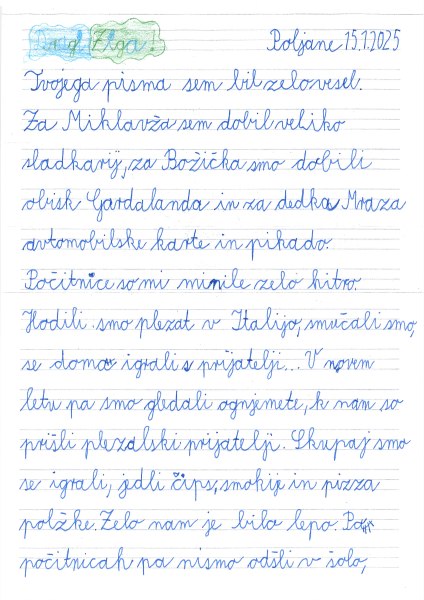 Dragi Žiga! Poljane 15.1.2025
Tvojega pisma sem bil zelo vesel.
Za Miklavža sem dobil veliko
sladkarij, za Božička smo dobili
obisk Gardalanda in za dedka Mraza
avtomobilske karte in pikado.
Počitnice so mi minile zelo hitro.
Hodili smo plezat v Italijo, smučali smo,
se doma igrali s prijatelji... V novem
letu pa smo gledali ognjemete, k nam so
prišli plezalski prijatelji. Skupaj smo
se igrali, jedli čips, smokije in pizza
polžke. Zelo nam je bilo lepo. Po
počitnicah pa nismo odšli v šolo,